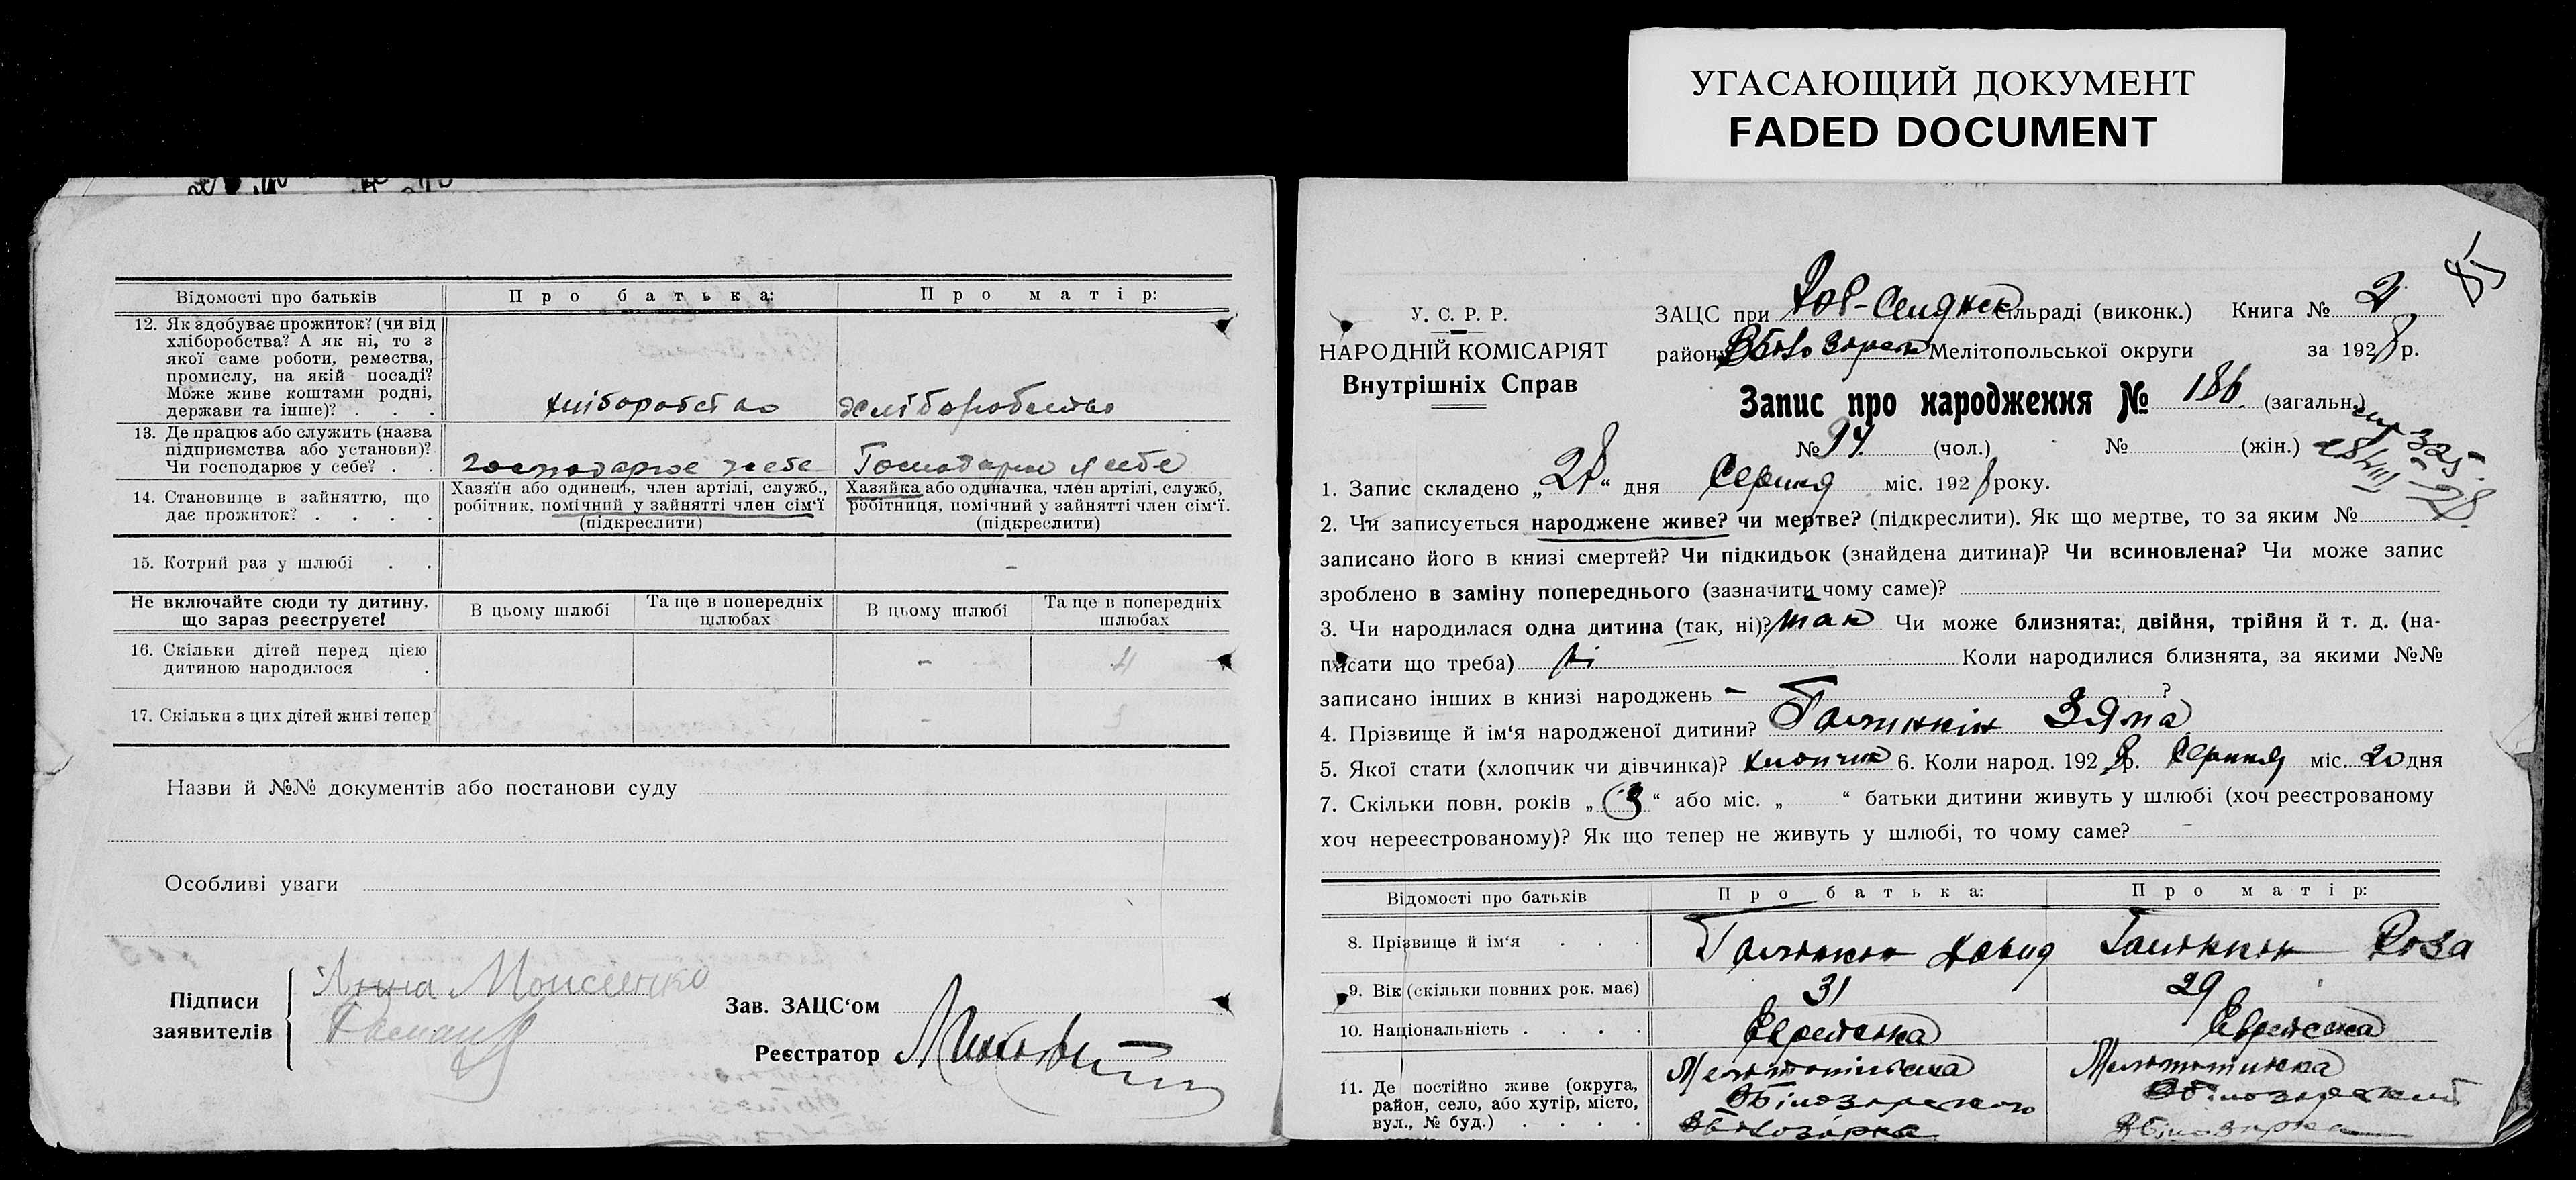 УГАСАЮЩИЙ ДОКУМЕНТ
FADED DOCUMENT
Відомості про батьків
Про батька:
Про матір:
12. Як здобуває прожиток? (чи від хліборобства? А як ні, то з якої саме роботи, ремества, промислу, на якій посаді? Може живе коштами родні, держави та інше)? . . .
хліборобство
хліборобство
13. Де працює або служить (назва підприємства або установи)? Чи господарює у себе? . .
господарює у себе
Господарює у себе
14. Становище в зайняттю, що дає прожиток? . . . .
Хазяїн або одинець, член артілі, служб., робітник, помічний у зайнятті член сім'ї (підкреслити)
Хазяйка або одиначка, член артілі, служб, робітниця, помічний у зайнятті член сім'ї. (підкреслити)
15. Котрий раз у шлюбі . .
-
Не включайте сюди ту дитину, що зараз реєструєте!
В цьому шлюбі
Та ще в попередніх шлюбах
В цьому шлюбі
Та ще в попередніх шлюбах
16. Скільки дітей перед цією дитиною народилося .
-
4
17. Скільки з цих дітей живі тепер
-
3
Назви й №№ документів або постанови суду
Особливі уваги
Підписи заявителів
Анна Моисеенко
Зав. ЗАЦС'ом
Реєстратор
85
У. С. Р. Р.
НАРОДНІЙ КОМІСАРІЯТ
Внутрішніх Справ
ЗАЦС при сільраді (виконк.) Книга № 2
район Мелітопольської округи за 1928 р.
Запис про народження № 186 (загальн.)
№ 94 (чол.) № (жін.)
1. Запис складено „28“ дня Серпня міс. 1928 року.
2. Чи записується народжене живе? чи мертве? (підкреслити). Як що мертве, то за яким №
записано його в книзі смертей? Чи підкидьок (знайдена дитина)? Чи всиновлена? Чи може запис
зроблено в заміну попереднього (зазначити чому саме)?
3. Чи народилася одна дитина (так, ні)? так Чи може близнята: двійня, трійня й т. д. (на-
писати що треба) ні Коли народилися близнята, за якими №№
записано інших в книзі народжень - ?
4. Прізвище й ім'я народженої дитини? Зяма
5. Якої стати (хлопчик чи дівчинка)? хлопчик 6. Коли народ. 1928 р. Серпня міс. 20 дня
7. Скільки повн. років „3“ або міс. „ “ батьки дитини живуть у шлюбі (хоч реєстрованому
хоч нереєстрованому)? Як що тепер не живуть у шлюбі, то чому саме?
Відомості про батьків
Про батька:
Про матір:
8. Прізвище й ім'я . . .
Давид
Роза
9. Вік (скільки повних рок. має)
31
29
10. Національність . . . .
Еврейська
Еврейська
11. Де постійно живе (округа, район, село, або хутір, місто, вул., № буд.) . . . .